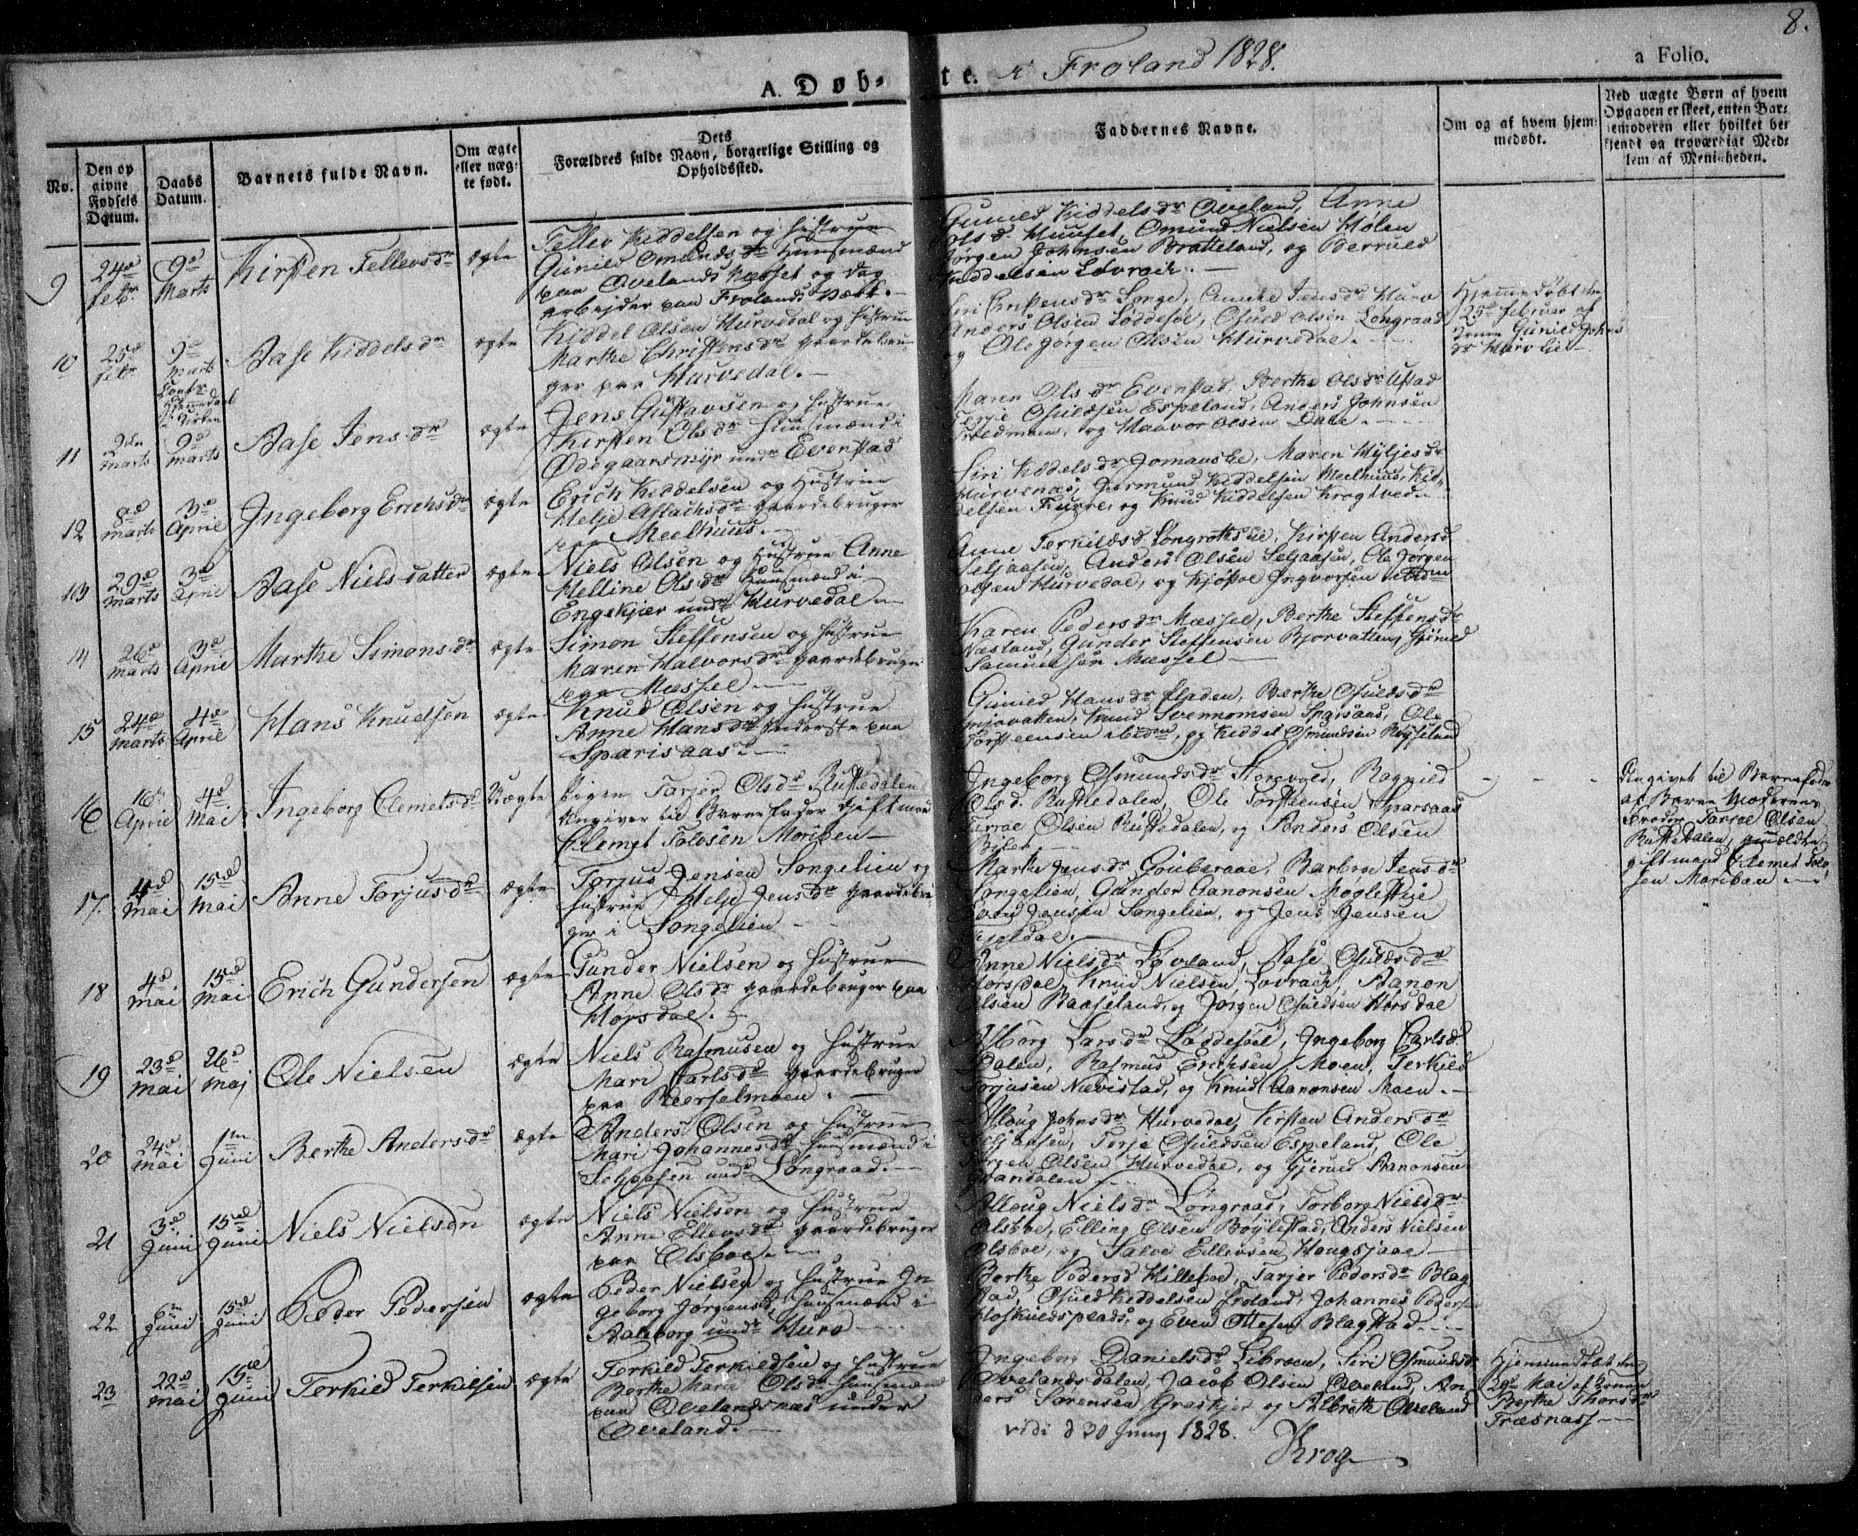 8.
A. Døb-te. i Froland 1828.
a Folio.
No.
Den op
givne
Fødsels
Datum.
Daabs
Datum.
Barnets fulde Navn.
Om ægte
eller uæg-
te født.
Dets
Forældres fulde Navn, borgerlige Stilling og
Opholdssted.
Faddernes Navne.
Om og af hvem hjem-
medøbt.
Ved uægte Børn af hvem
Opgaven er skeet, enten Bar-
nemoderen eller hvilket be-
kjendt og troværdigt Med-
lem af Menigheden.
9
24de
febr
9de
Marts
Kirsten Tellevsdr
ægte
Tellev Kiddelsen og hustrue
Gunild Omundsdr Huusmænd
paa Ovelands Næsset og dag
arbejder paa Frolands Værk.
Gunild Kiddelsdr Oveland, Anne
Olsd. Huuset, Omund Nielsen Hølen
Jørgen Johnsen Bratteland, og Berruld
Kiddelsen Lovrach.
10
25de
febr
9de
Marts
Aase Kiddelsdr
ægte
Kiddel Olsen Hurvedal og hustrue
Marthe Christensdr gaardebru-
ger paa Hurvedal.
Anders Olsen Løddesøl, Osuld Olsen Longraad
og Ole Jørgen Olsen Hurvedal.
Hjemmedøbt den
25de februar af
11
2den
marts
9de
marts
Aase Jensdr
ægte
Jens Gustavsen og hustrue
Kirsten Olsdr Huusmænd i
Ødegaarsmyr undr Evenstad
Maren Olsdr Evenstad, Berthe Olsdr Ufstad
Terje Osuldsen Espeland, Anders Johnsen
og Haavor Olsen Dale.
12
8de
marts
3de
April
Ingeborg Erichsdr
ægte
Erich Kiddelsen og Hustrue
Helje Aslachsdr gaardebruger
paa Meelhuus.
Siri Kiddelsdr Jomaaslie, Maren Hyljesdr
Hurvenæs, Jormund Kiddelsen Meelhuus, Kid-
delsen Furre, og Knud Kiddelsen Krogtvedt
13
29de
marts
3de
April
Aase Nielsdatter
ægte
Niels Olsen og hustrue Anne
Helline Olsdr Huusmænd i
Engekjær undr Hurvedal
Anne Terkildsd. Longrothslie, Kirsten Andersd
Seljaasen, Anders Olsen Seljaasen, Ole Jørgen
Olsen Hurvedal, og Kjøstel Ingvorsen ibidm
14
26de
Marts
3de
April
Marthe Simonsdr
ægte
Simon Steffensen og hustrue
Karen Halvorsdr gaardebruger
paa Mæssel
Karen Pedersdr Mæssel, Berthe Steffensdr
Næsland, Gunder Steffensen Bjorvatten,
Samuelsen Mæssel
15
24de
Marts
4de
April
Hans Knudsen
ægte
Knud Olsen og hustrue
Anne Hansdr Inderste paa
Sparisaas
Gunild Hansdr fladen, Berthe Osuldsdr
Knud Svennomsen Sparsaas, Ole
Torsteensen ibidem, og Kiddel Osmundsen Røyseland
16
16de
April
4de
Mai
Ingeborg Clemetsdr
Uægte
Pigen Tarjer Olsdr Rustedalen
Angiver til Barnefader Giftmand
Clemet Tolvsen Moriben
Ingeborg Osmundsdr Storevold, Ragnild
Olsd. Rustedalen, Ole Torsteensen Sparsaas
Tarral Olsen Rustedalen, og Anders Olsen
Bøler
Angivet til Barnefader
af Barne Moderens
Broder Tarjel Olsen
Rustedalen,
giftmand Clemet Tolv-
sen Moriben
17.
4de
Mai
15de
Mai
Anne Torjusdr
ægte
Torjus Jensen Songelien og
hustrue Helje Jensdr gaardebru-
ger i Songelien
Marthe Jensdr Gouberaae, Barbroe Jensdr
Songelien, Gunder Aanonsen Moglestue
Jensen Songelien, og Jens Jensen
Kjeldal.
18
4de
Mai
15de
Mai
Erich Gundersen
ægte
Gunder Nielsen og hustrue
Anne Olsdr gaardebruger paa
Horsdal.
Anne Nielsdr Løvland, Aase Osuldsdr
Horsdal, Knud Nielsen Lovrach, Aanon
Olsen Baaseland, og Jørgen Osuldsen Horsdal
19
23de
Mai
26de
Maj
Ole Nielsen
ægte
Niels Rasmusen og hustrue
Mari Carlsdr gaardebruger
paa Reerselmoen.
Alborg Larsdr Løddesøel, Ingeborg Carlsd.
Dalen, Rasmus Erichsen Moen, Terkild
Torjusen Nævistad, og Knud Aanonsen Moen.
20
24de
Mai
1ste
Juni
Berthe Andersdr
ægte
Anders Olsen og hustrue
Mari Johannesdr Huusmænd i
Seljaasen undr Longraad.
Alloug Johnsdr Hurvedal, Kirsten Andersdr
Seljaasen, Torje Osuldsen Espeland, Ole
Jørgen Olsen Hurvedal, og Gjeruld Aanonsen
Grandalen
21
3de
Juni
15de
Juni
Niels Nielsen
ægte
Niels Nielsen og hustrue
Anne Ellevsdr gaardebruger
paa Olsboe
Alloug Nielsdr Longraad, Torborg Nielsdr
Olsboe, Elling Olsen Bøylestad, Anders Nielsen
Olsboe, og Salve Ellevsen Hougsjaae
22
6te
Juni
15de
Juni
Peder Pedersen
ægte
Peder Nielsen og hustrue In-
geborg Jørgensd. Huusmænd i
Aalborg undr Hurv
Berthe Pedersd Hilleboe, Tarjer Pedersdr Blag-
stad, Osuld Kiddelsen Froland, Johannes Pedersen
Hoskuldsplads, og Even Ottesen Blagstad
23
22de
Mai
15de
Juni
Terkild Terkilsen
ægte
Terkild Terkildsen og hustrue
Berthe Marie Olsdr Huusmænd
paa Ovelandsnæs under
Oveland.
Ingeborg Danielsdr Libroen, Siri Osmundsd
Ovelandsdalen, Jacob Olsen Oveland, An-
ders Sørensen Graskjer og Albreth Oveland
Hjemmedøbt den
29de Mai af Konen
Berthe Thorsdr
Træsnæss
vidi d 30 Juny 1828.
Krog